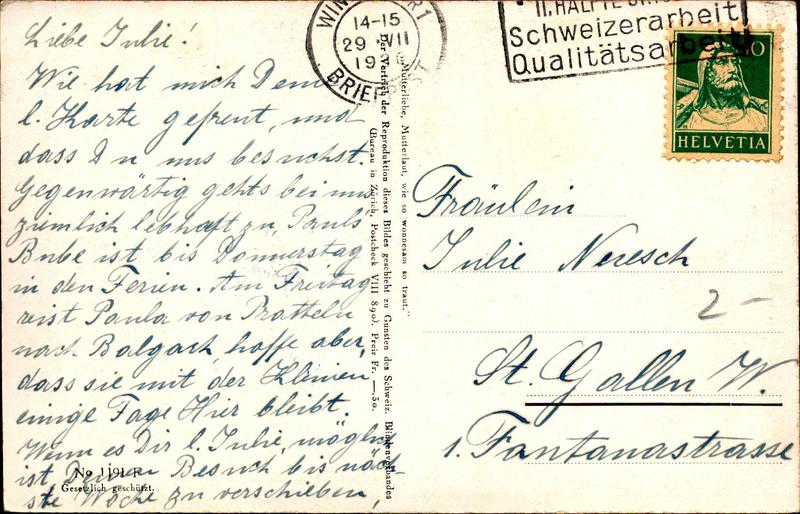 Liebe Julie!
Wie hat mich Deine
l. Karte gefreut, und
dass Du uns besuchst.
Gegenwärtig gehts bei uns
ziemlich lebhaft zu, Pauls
Bube ist bis Donnerstag
in den Ferien. Am Freitag
reist Paula von Pratteln
nach Balgach, hoffe aber,
dass sie mit der Kleinen
einige Tage Hier bleibt.
Wenn es Dir l. Julie, möglich
ist, Deinen Besuch bis näch-
ste Woche zu verschieben,
No 1191 F
Gesetzlich geschützt.
„Mutterliebe, Mutterlaut, wie so wonnesam so traut."
Der Vertrieb der Reproduktion dieses Bildes geschieht zu Gunsten des Schweiz. Blindenverbandes
(Bureau in Zürich, Postcheck VIII 890). Preis Fr. —.30.
14-15
29. VII
19
BRIEF
II. HÄLFTE
Schweizerarbeit
Qualitätsarbeit
10
HELVETIA
Fräulein
Julie
2-
St. Gallen W.
1. Fontanastrasse